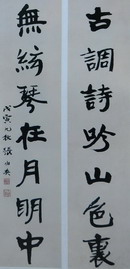 古調詩吟山色裏
無絃琴在月明中
戊寅 張伯英